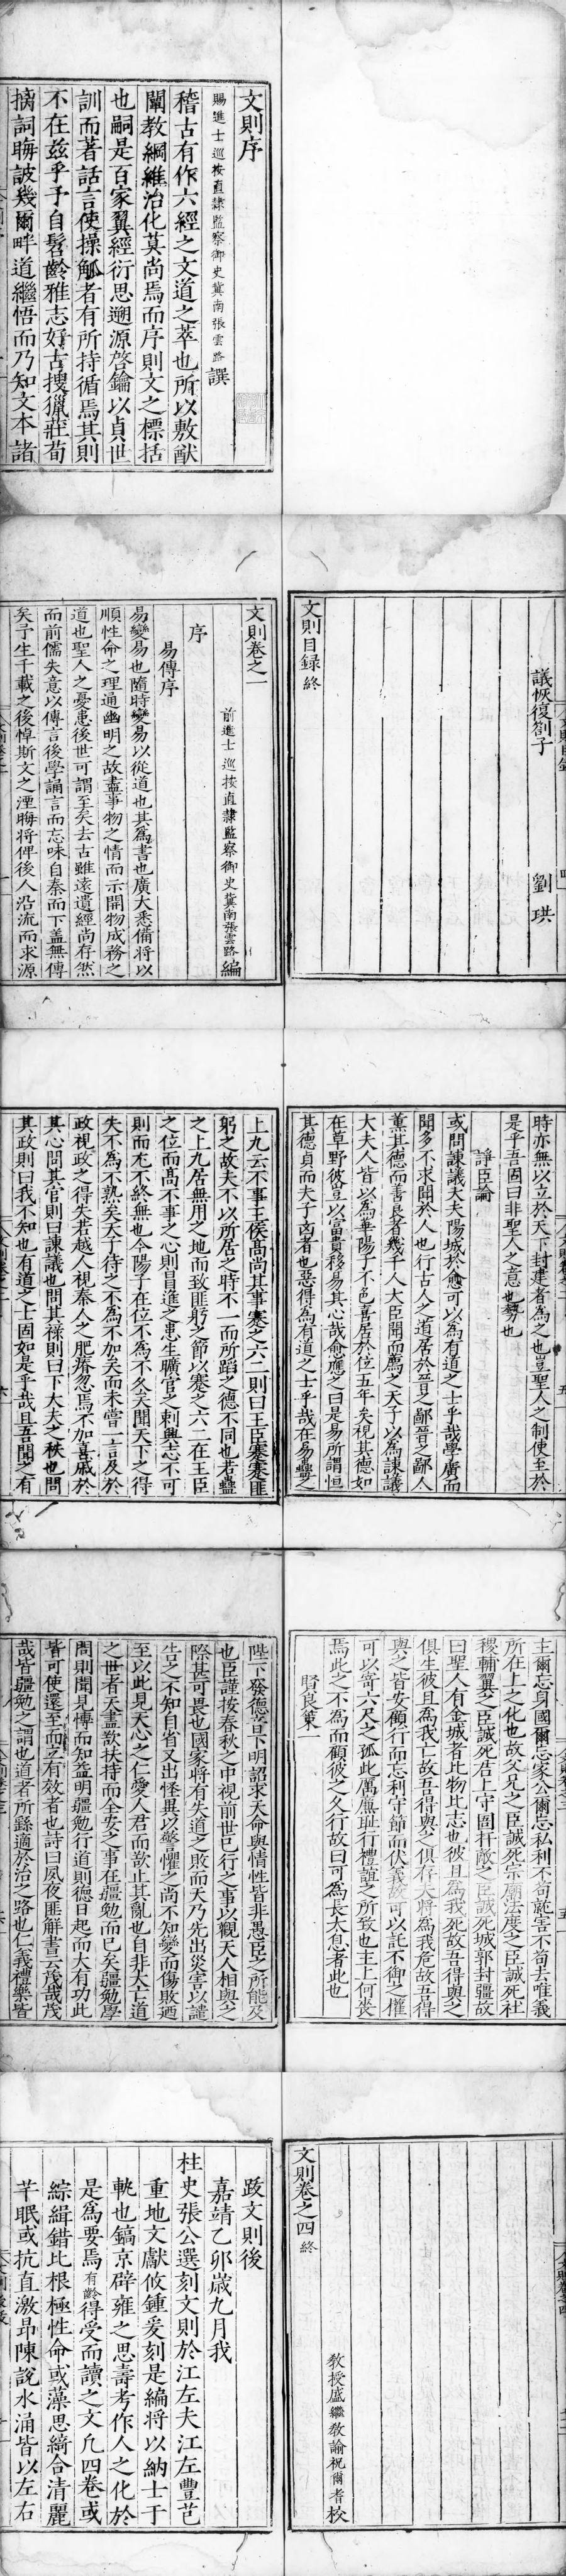 文則序
賜進士巡按直隸監察御史冀南張雲路譔
稽古有作六經之文道之萃也所以敷猷
闡教綱維治化莫尚焉而序則文之標括
也嗣是百家翼經衍思遡源啓鑰以貞世
訓而著話言使操觚者有所持循焉其則
不在兹乎予自髫齡雅志好古搜獵莊荀
摛詞晦詖幾爾畔道繼悟而乃知文本諸
議恢復劄子 劉珙
文則目録終
文則卷之一
前進士巡按直隸監察御史冀南張雲路編
序
易傳序
易變易也隨時變易以從道也其為書也廣大悉備將以
順性命之理通幽明之故盡事物之情而示開物成務之
道也聖人之憂患後世可謂至矣去古雖遠遺經尚存然
而前儒失意以傳言後學誦言而忘味自秦而下盖無傳
矣予生千載之後悼斯文之湮晦將俾後人沿流而求源
時亦無以立於天下封建者為之也豈聖人之制使至於
是乎吾固曰非聖人之意也勢也
諍臣論
或問諫議大夫陽城於愈可以為有道之士乎哉學廣而
聞多不求聞於人也行古人之道居於晉之鄙晉之鄙人
薰其德而善良者幾千人大臣聞而薦之天子以為諫議
大夫人皆以為華陽子不色喜居於位五年矣視其德如
在草野彼豈以富貴移易其心哉愈應之曰是易所謂恒
其德貞而夫子凶者也惡得為有道之士乎哉在易蠱之
上九云不事王侯高尚其事蹇之六二則曰王臣蹇蹇匪
躬之故夫不以所居之時不一而所蹈之德不同也若蠱
之上九居無用之地而致匪躬之節以蹇之六二在王臣
之位而高不事之心則冒進之患生曠官之刺興志不可
則而尤不終無也今陽子在位不為不久矣聞天下之得
失不為不熟矣天子待之不為不加矣而未嘗一言及於
政視政之得失若越人視秦人之肥瘠忽焉不加喜戚於
其心問其官則曰諫議也問其祿則曰下大夫之秩也問
其政則曰我不知也有道之士固如是乎哉且吾聞之有
主爾忘身國爾忘家公爾忘私利不苟就害不苟去唯義
所在上之化也故父兄之臣誠死宗廟法度之臣誠死社
稷輔翼之臣誠死君上守圄扞敵之臣誠死城郭封疆故
曰聖人有金城者比物比志也彼且為我死故吾得與之
俱生彼且為我亡故吾得與之俱存夫將為我危故吾得
與之皆安顧行而忘利守節而伏義故可以託不御之權
可以寄六尺之孤此厲廉恥行禮誼之所致也主上何喪
焉此之不為而顧彼之久行故曰可為長大息者此也
賢良策一
陛下發德音下明詔求天命與情性皆非愚臣之所能及
也臣謹按春秋之中視前世已行之事以觀天人相與之
際甚可畏也國家將有失道之敗而天乃先出災害以譴
告之不知自省又出怪異以警懼之尚不知變而傷敗廼
至以此見天心之仁愛人君而欲止其亂也自非大亡道
之世者天盡欲扶持而全安之事在彊勉而已矣彊勉學
問則聞見愽而知益明彊勉行道則德日起而大有功此
皆可使還至而立有效者也詩曰夙夜匪解書云茂哉茂
哉皆彊勉之謂也道者所繇適於治之路也仁義禮樂皆
文則卷之四終
教授盛繼教諭祝爾耆校
跋文則後
嘉靖乙卯歲九月我
柱史張公選刻文則於江左夫江左豐芑
重地文獻攸鍾爰刻是編將以納士于
軌也鎬京辟雍之思壽考作人之化於
是為要焉有齡得受而讀之文凡四卷或
綜緝錯比根極性命或藻思綺合清麗
芊眠或抗直激昂陳說水涌皆以左右